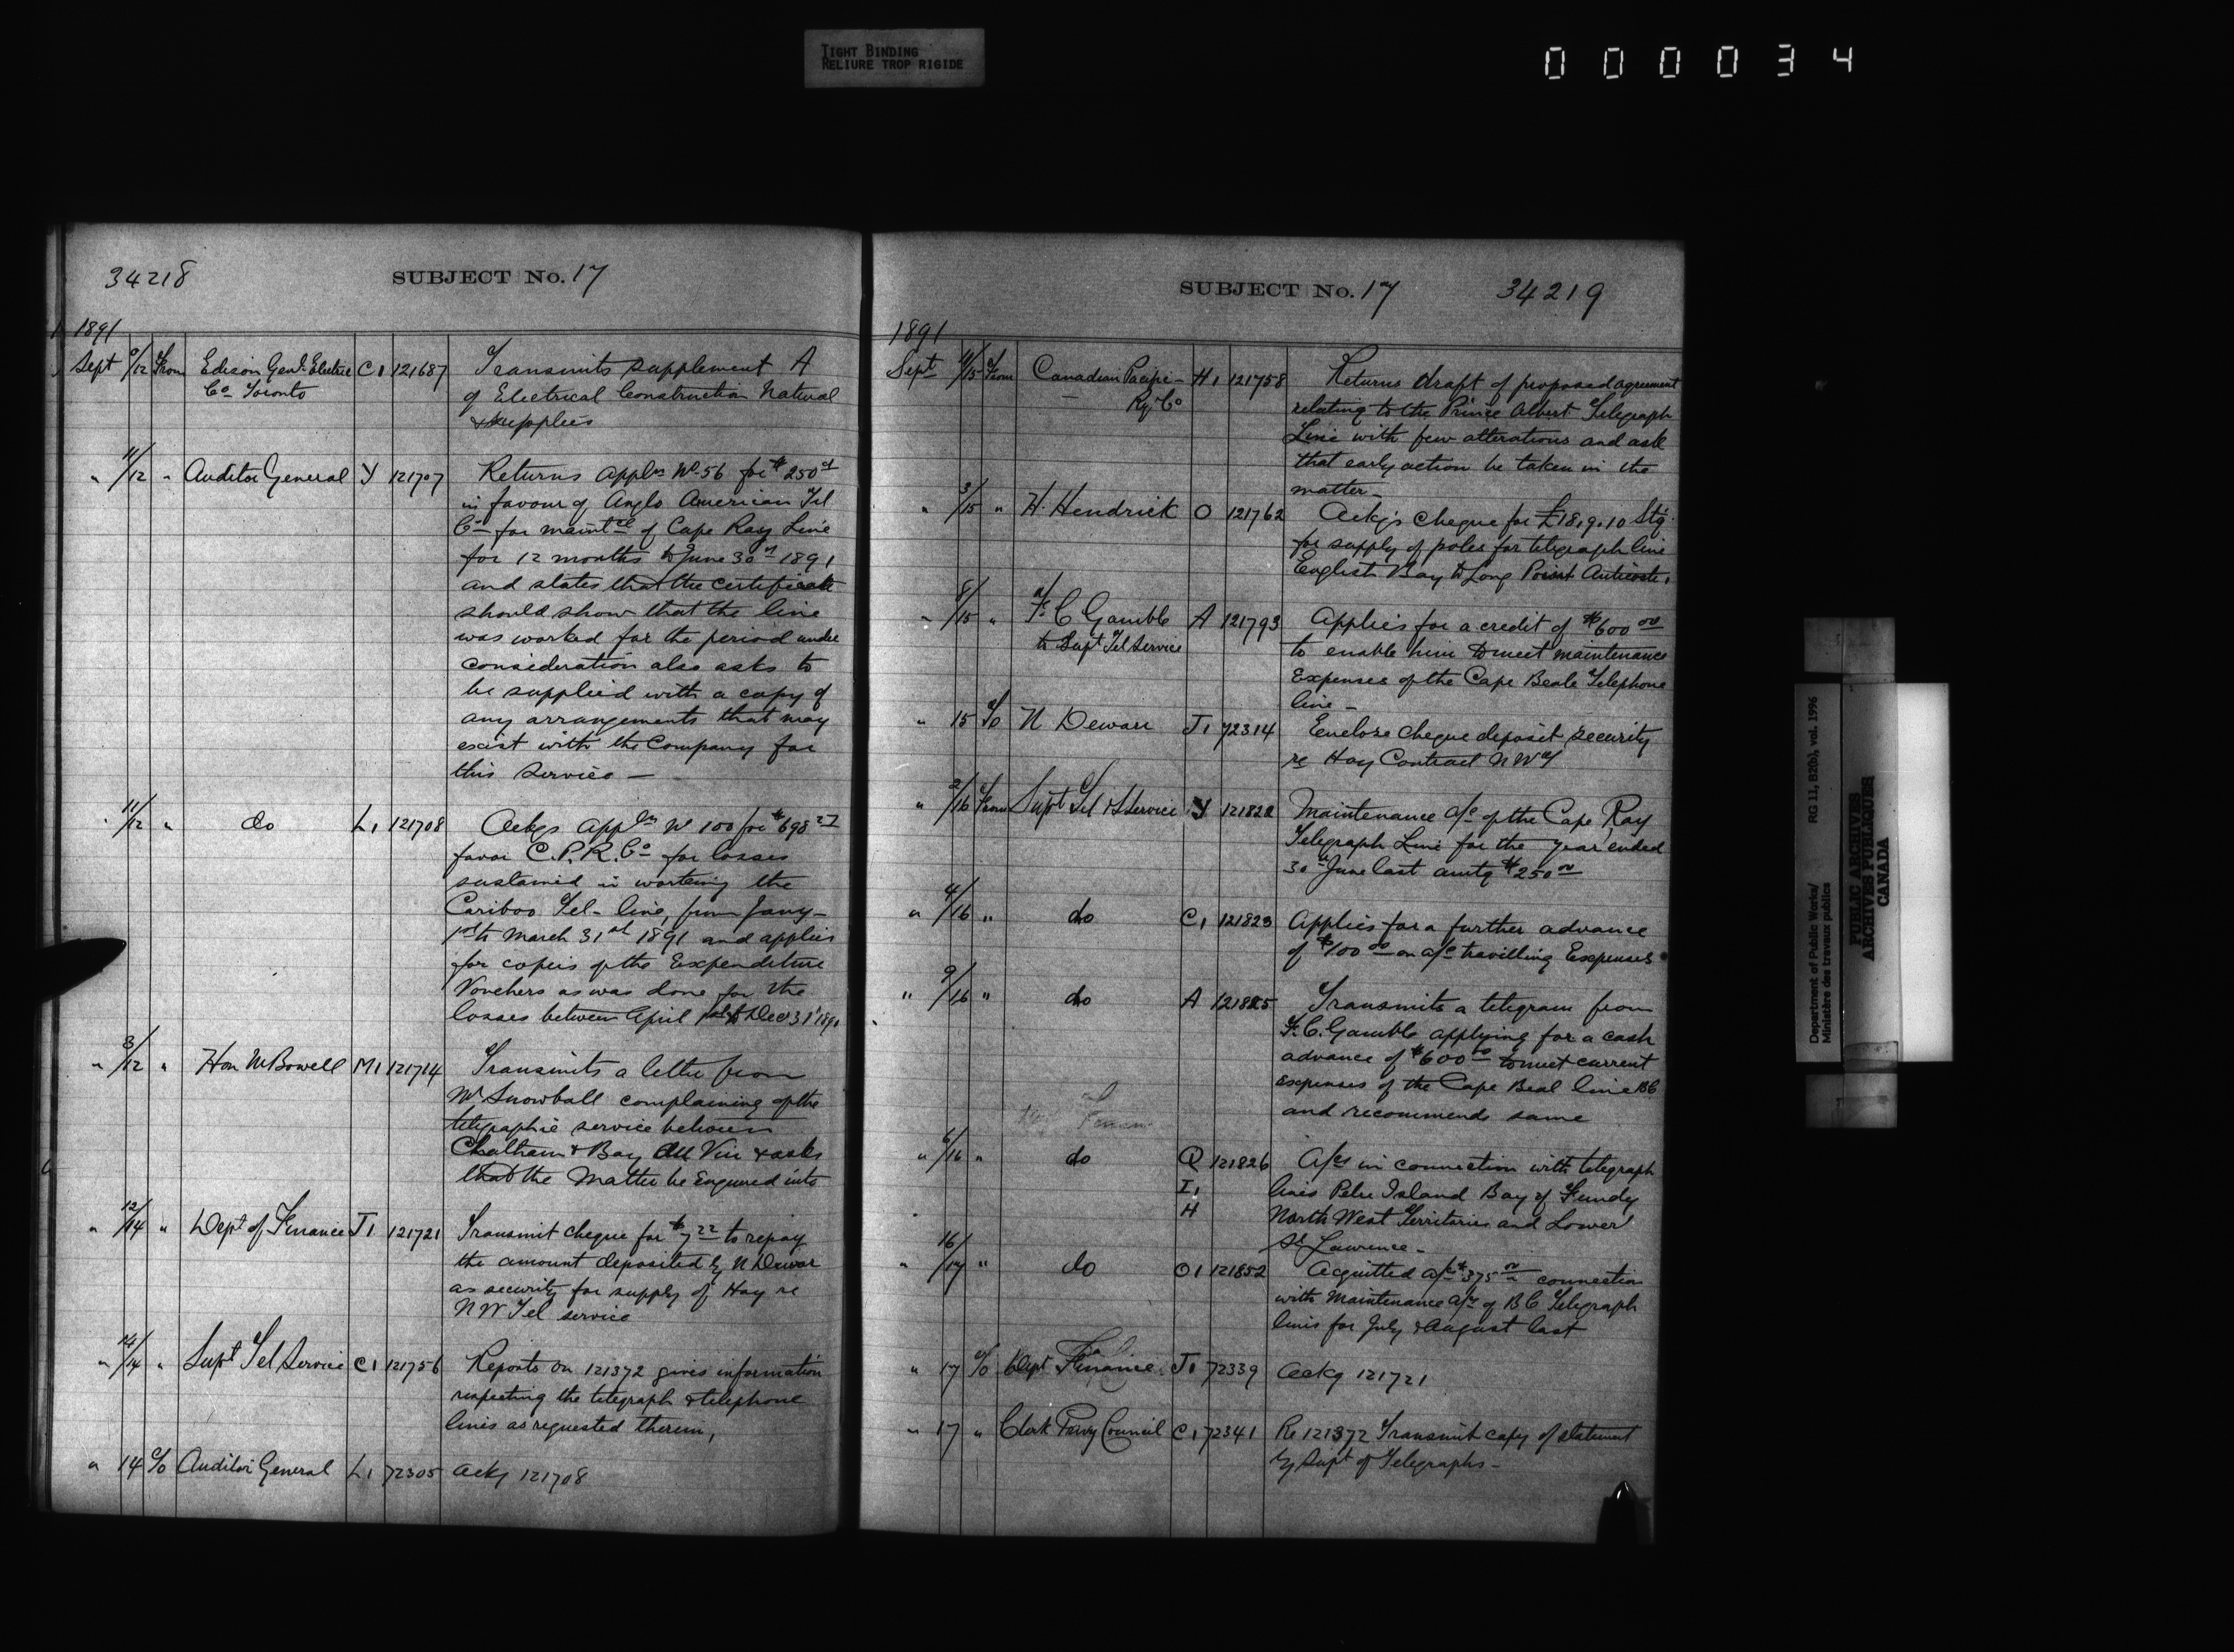 TIGHT BINDING
RELIURE TROP RIGIDE
000034
34218 SUBJECT No. 17
1891
Sept 9/12 From Edison Genl Electric C1 121687 Transmits supplement A
Co Toronto of Electrical Construction Natural
& supplies
" 11/12 " Auditor General Y 121707 Returns appln No 56 for $250 00
in favour of Anglo American Tel
Co for maintce of Cape Ray Line
for 12 months to June 30th 1891
and states that the certificate
should show that the line
was worked for the period under
consideration also asks to
be supplied with a copy of
any arrangements that may
exist with the Company for
this service —
" 11/12 " do L1 121708 Ackgs appln No 100 for $698 27
favor C.P.R. Co for losses
sustained in working the
Cariboo Tel- line, from Jany-
1st to March 31st 1891 and applies
for copies of the Expenditure
Vouchers as was done for the
losses between April 1st & Dec 31st 1890
" 3/12 " Hon M Bowell M1 121714 Transmits a letter from
Mr Snowball complaining of the
telegraphic service between
Chatham & Bay du Vin & asks
that the Matter be Enquired into
" 12/14 " Dept of Finance J1 121721 Transmit cheque for $7 22 to repay
the amount deposited by N Dewar
as security for supply of Hay re
N W Tel service
" 14/14 " Supt Tel Service C1 121756 Reports on 121372 gives information
respecting the telegraph & telephone
lines as requested therein,
" 14 To Auditor General L1 72305 Ackg 121708
SUBJECT No. 17 34219
1891
Sept 11/15 From Canadian Pacific H1 121758 Returns draft of proposed agreement
Ry Co relating to the Prince Albert Telegraph
Line with few alterations and ask
that early action be taken in the
matter-
" 3/15 " H. Hendrick O 121762 Ackgs cheque for £18.9.10 Stg
for supply of poles for telegraph line
English Bay to Long Point Anticosti.
" 8/15 " F. C Gamble A 121793 Applies for a credit of $600 00
to Supt Tel Service to enable him to meet maintenance
Expenses of the Cape Beale Telephone
line -
" 15 To N Dewar J1 72314 Enclose cheque deposit security
re Hay Contract N W T
" 2/16 From Supt Tel & S Service Y 121822 Maintenance a/c of the Cape Ray
Telegraph Line for the year ended
30th June last amtg $250 00
" 4/16 " do C1 121823 Applies for a further advance
of $100 00 on a/c travelling Expenses
" 9/16 " do A 121825 Transmits a telegram from
F. C. Gamble applying for a cash
advance of $600 00 to meet current
expenses of the Cape Beal line BC
and recommends same
" 6/16 " do Q 121826 A/cs in connection with telegraph
I1 lines Pelee Island Bay of Fundy
H North West Territories and Lower
St Lawrence -
" 16/17 " do O1 121852 Acquitted a/c $375 00 connection
with Maintenance a/c of B C Telegraph
lines for July & August last
" 17 To Dept Finance J1 72339 Ackg 121721
" 17 " Clerk Privy Council C1 72341 Re 121372 Transmit copy of statement
by Supt of Telegraphs -
Department of Public Works/ RG 11, B2(b), vol. 1996
Ministère des travaux publics
PUBLIC ARCHIVES
ARCHIVES PUBLIQUES
CANADA